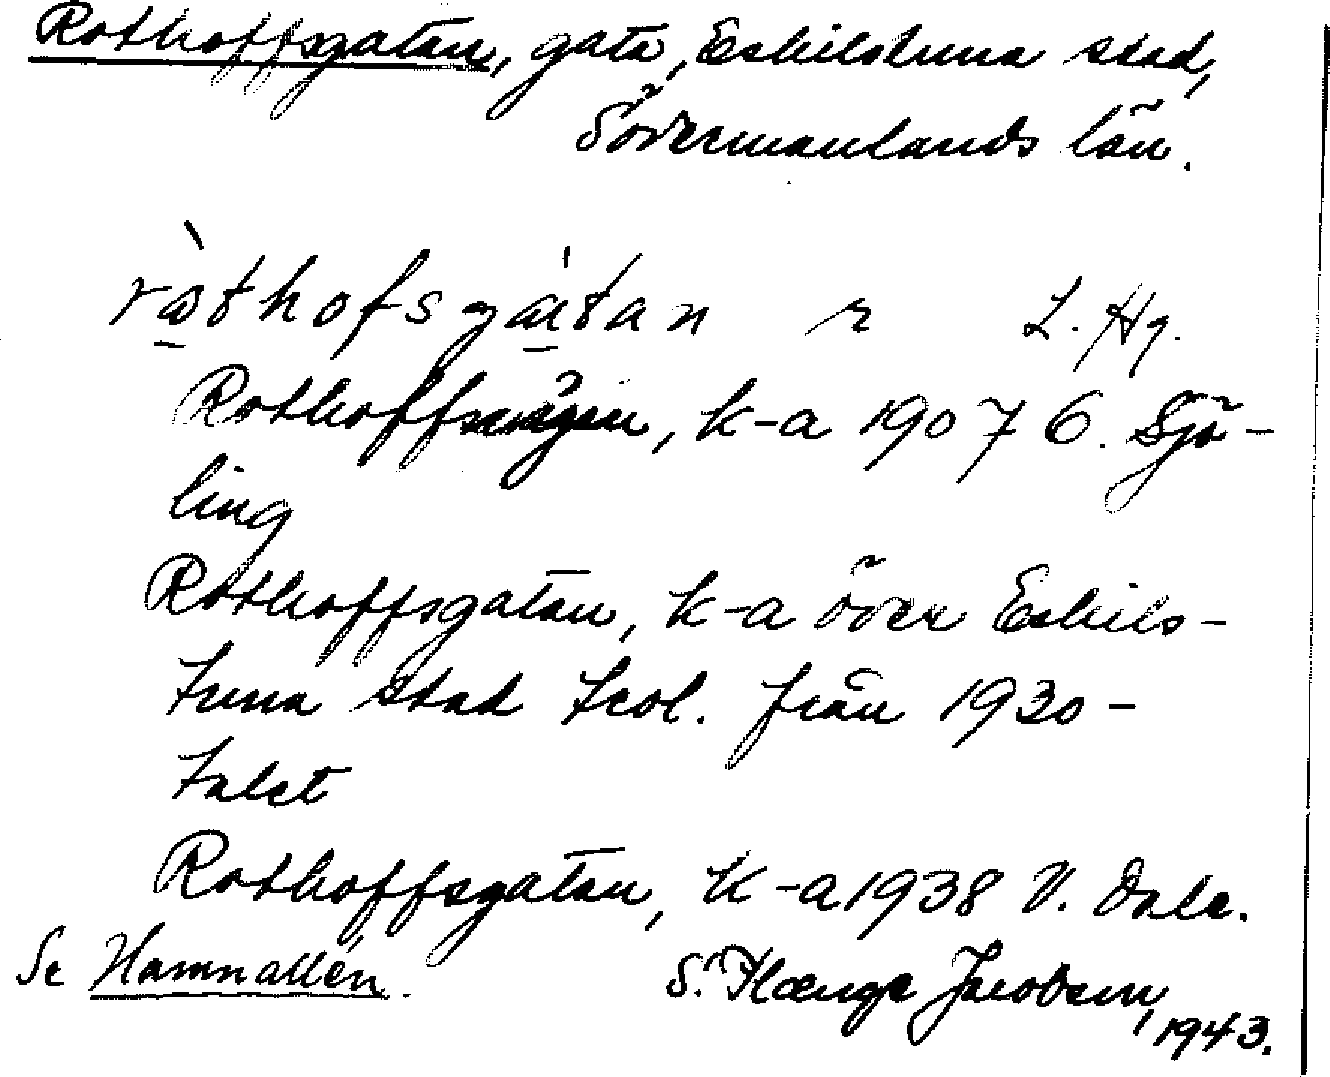 Rothoffsgatan, gata, Eskilstuna stad,
Södermanlands län.
ròthofsgátan r L. Hg.
Rothoffsvägen, k-a 1907 G. Sjö-
ling
Rothoffsgatan, k-a över Eskils-
tuna stad trol. från 1930-
talet
Rothoffsgatan, k-a 1938 V. Dale.
Se Hamnallén. S. Jacobson,
1943.